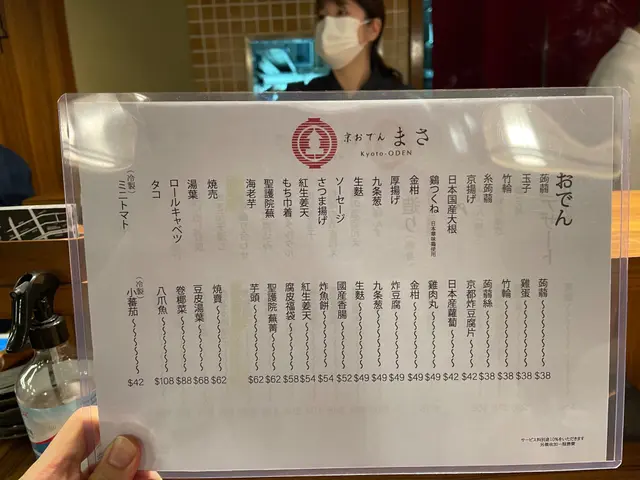 京おでん まさ
Kyoto-ODEN
おでん
蒟蒻
玉子
竹輪
糸蒟蒻
京揚げ
日本国産大根
鶏つくね 日本華味鳥使用
金柑
厚揚げ
九条葱
生麩
ソーセージ
さつま揚げ
紅生姜天
もち巾着
聖護院蕪
海老芋
焼売
湯葉
ロールキャベツ
タコ
(冷製) ミニトマト
蒟蒻 $38
雞蛋 $38
竹輪 $38
蒟蒻絲 $38
京都炸豆腐片 $42
日本産蘿蔔 $42
雞肉丸 $49
金柑 $49
炸豆腐 $49
九条葱 $49
生麩 $49
國産香腸 $52
炸魚餅 $54
紅生姜天 $54
腐皮福袋 $58
聖護院 蕪菁 $62
芋頭 $62
燒賣 $62
豆皮湯葉 $68
卷椰菜 $88
八爪魚 $108
(冷製) 小蕃茄 $42
サービス料別途10%をいただきます
另費收加一服務費